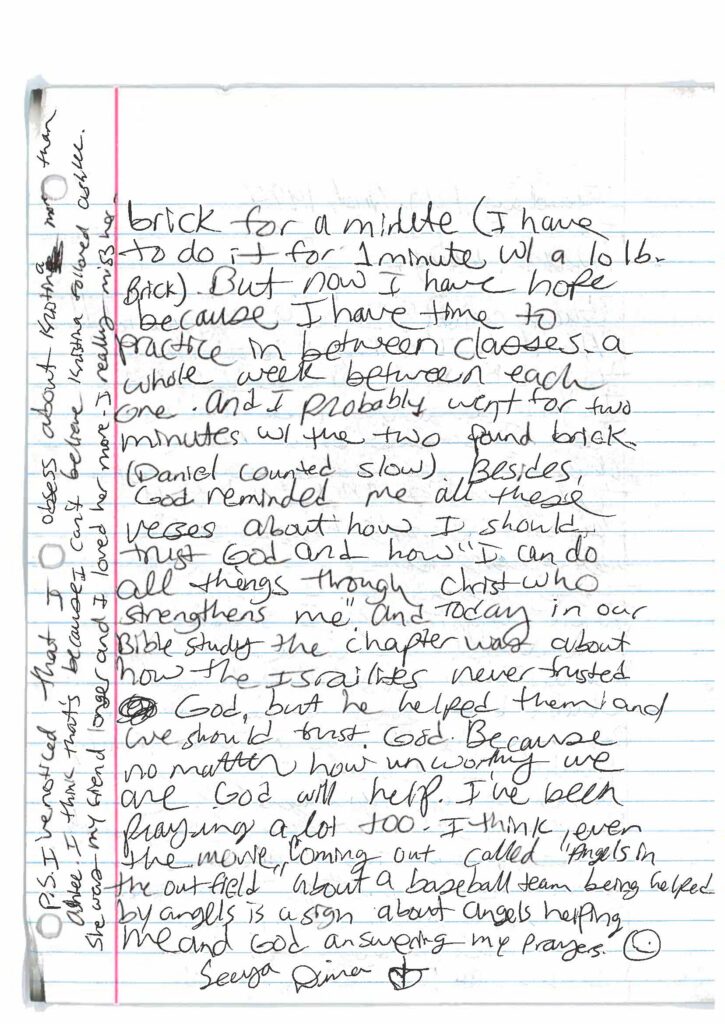 brick for a minute (I have
to do it for 1 minute w/ a 10 lb.
Brick). But now I have hope
because I have time to
practice in between classes. a
whole week between each
one. And I probably went for two
minutes w/ the two pound brick.
(Daniel counted slow). Besides,
God reminded me all these
verses about how I should
trust God and how "I can do
all things through Christ who
strengthens me" and Today in our
Bible study the chapter was about
how the Israilites never trusted
God, but he helped them and
we should trust God. Because
no matter how unworthy we
are God will help. I've been
praying a lot too. I think, even
the movie, coming out called "Angels in
the outfield" about a baseball team being helped
by angels is a sign about angels helping
me and God answering my prayers.
Seeya
P.S. I've noticed that I obsess about Kristina more than
I think that's because I can't believe Kristina followed
She was my friend longer and I loved her more. I really miss her.